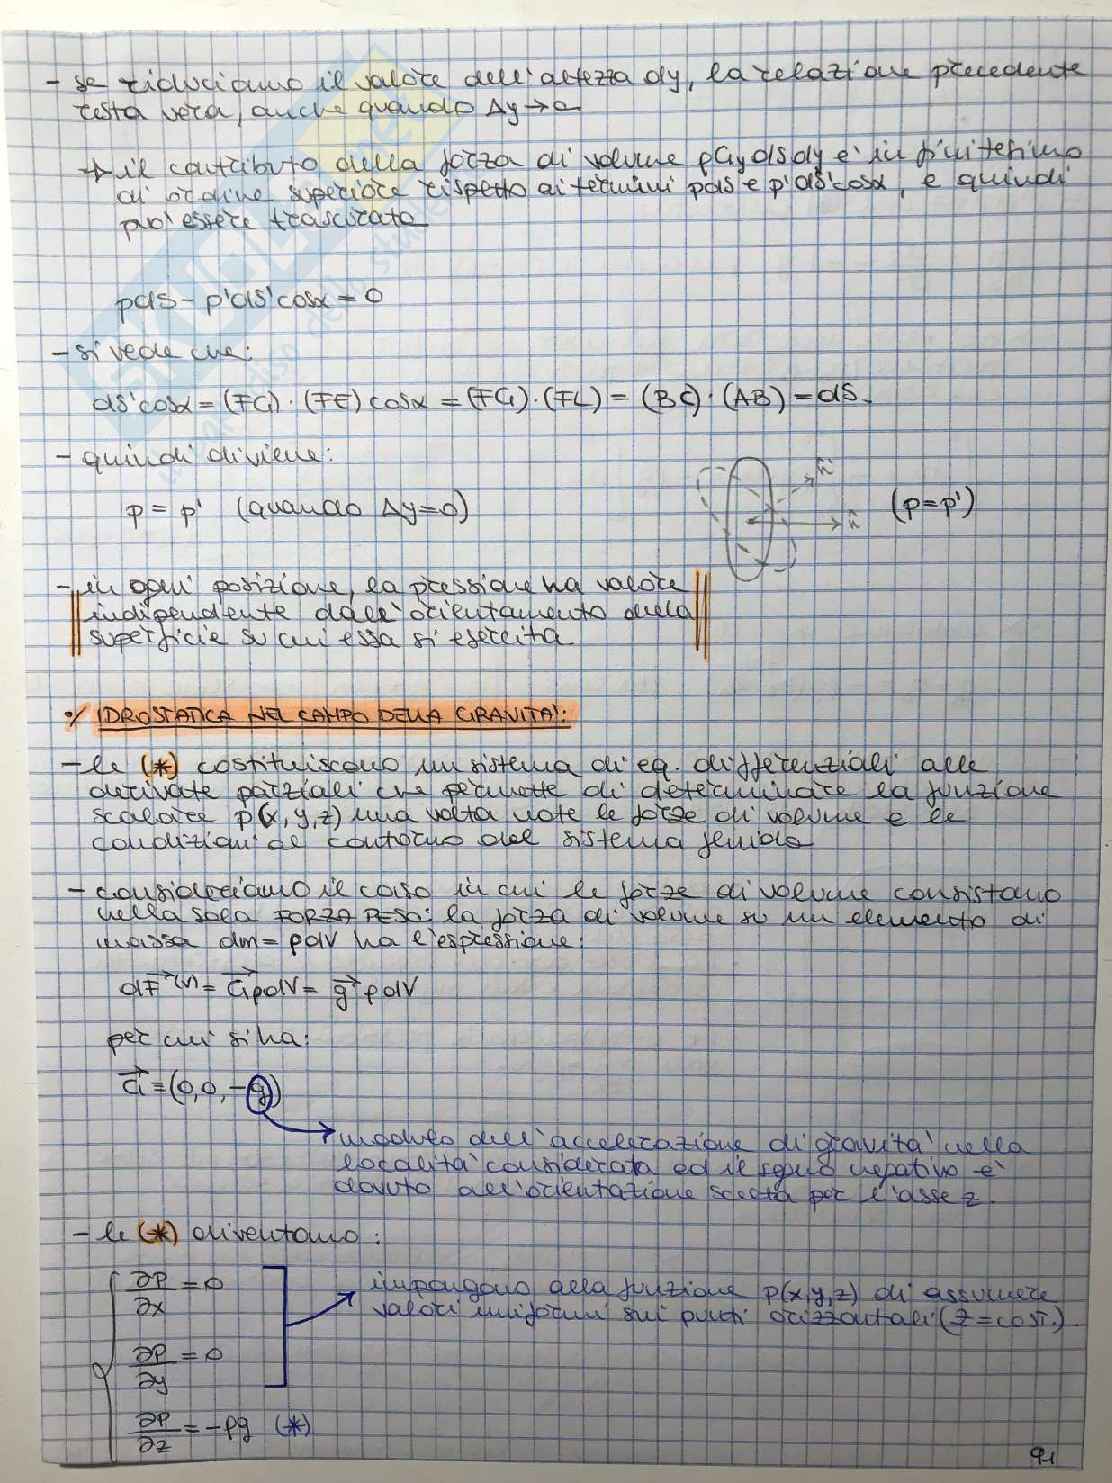 - se riduciamo il valore dell'altezza dy, la relazione precedente
resta vera, anche quando Δy→0
→ il contributo della forza di volume ρGy dS dy e' infinitesimo
di ordine superiore rispetto ai termini pdS e p'dS'cosα, e quindi
puo' essere trascurato
pdS - p'dS'cosα = 0
- si vede che:
dS'cosα = (FG)·(FE)cosα = (FG)·(FL) = (BC)·(AB) = dS.
- quindi diviene:
p = p' (quando Δy=0)
n'
n
(p=p')
- in ogni posizione, la pressione ha valore
indipendente dall'orientamento della
superficie su cui essa si esercita.
•/ IDROSTATICA NEL CAMPO DELLA GRAVITA':
- le (*) costituiscono un sistema di eq. differenziali alle
derivate parziali che permette di determinare la funzione
scalare p(x,y,z) una volta note le forze di volume e le
condizioni al contorno del sistema fluido
- consideriamo il caso in cui le forze di volume consistano
nella sola FORZA PESO: la forza di volume su un elemento di
massa dm = ρdV ha l'espressione:
dF⃗⁽ᵛ⁾ = G⃗ρdV = g⃗ρdV
per cui si ha:
G⃗ = (0,0,-g)
→ modulo dell'accelerazione di gravita' nella
localita' considerata ed il segno negativo e'
dovuto all'orientazione scelta per l'asse z.
- le (*) diventano:
∂P/∂x = 0
impongono alla funzione p(x,y,z) di assumere
valori uniformi sui punti orizzontali (z=cost.)
∂P/∂y = 0
∂P/∂z = -ρg (*)
91